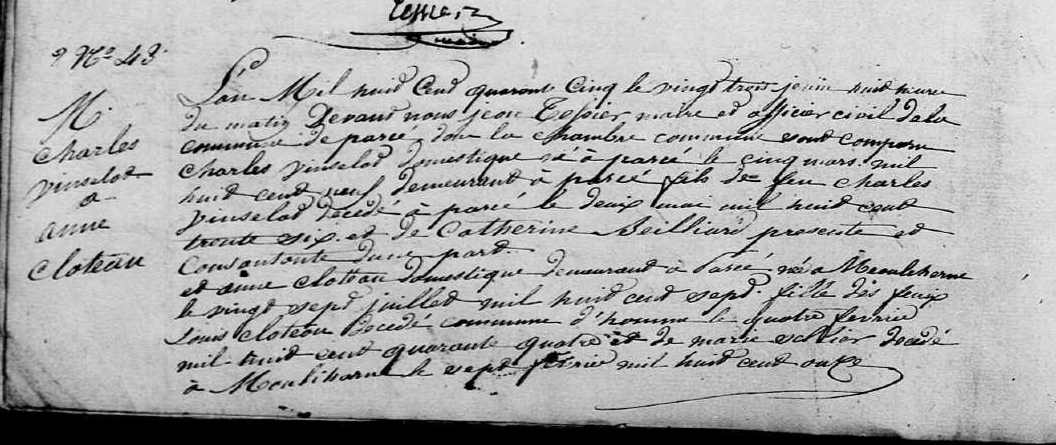 Tessier
Nº 43
M.
Charles
vinselot
a
anne
cloteau
L'an Mil huid Cend quarante Cinq le vingt trois juin huid heure
du matin Devant nous jean Tessier, maire et officier civil de la
commune de parcé, dans la chambre commune sont comparu
Charles vinselot domestique né à parcé le cinq mars mil
huid cent neuf demeurant à parcé fils de feu Charles
vinselot décédé à parcé le deux mai mil huid cent
trente six et de Catherine Beilliard presente et
Consantante d'une part.
et anne cloteau domestique demeurant a Parcé née a Meouleherne
le vingt sept juilled mil huid cent sept. fille des feux
Louis cloteau décédé commune d'homme le quatre fevrie
mil huid cent quarante quatre et de marie décédé
à Mouliharne le sept fevrie mil huid cent onze